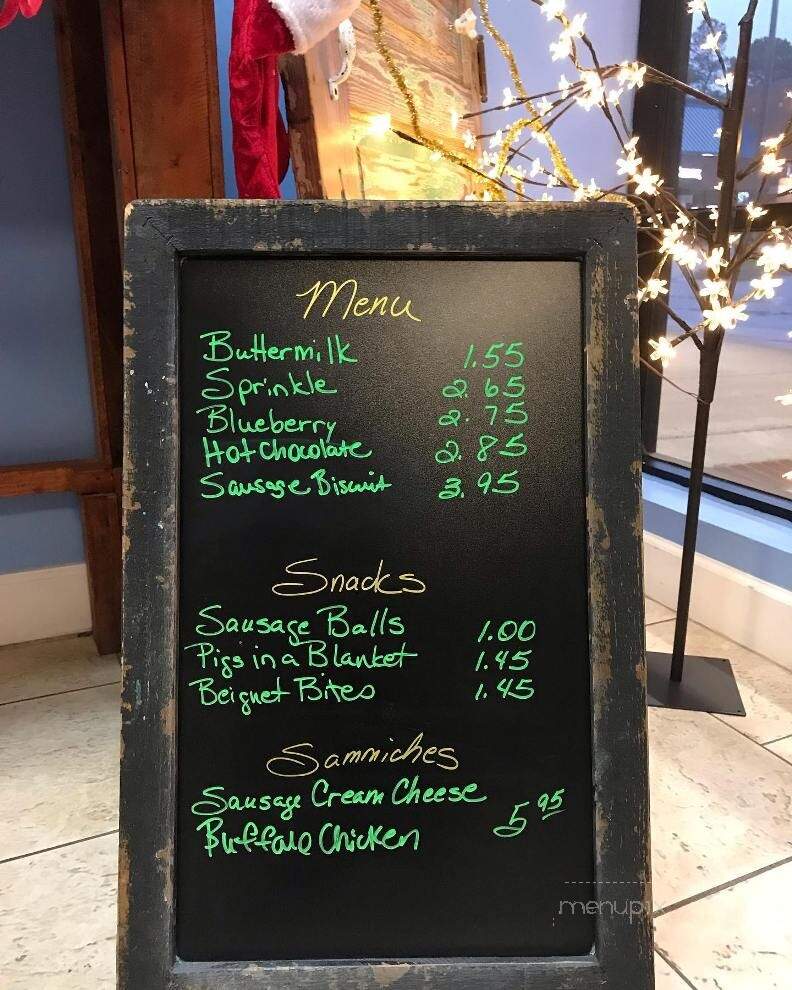 Menu
Buttermilk 1.55
Sprinkle 2.65
Blueberry 2.75
Hot Chocolate 2.85
Sausage Biscuit 3.95
Snacks
Sausage Balls 1.00
Pigs in a Blanket 1.45
Beignet Bites 1.45
Sammiches
Sausage Cream Cheese
Buffalo Chicken 5 95
menupix